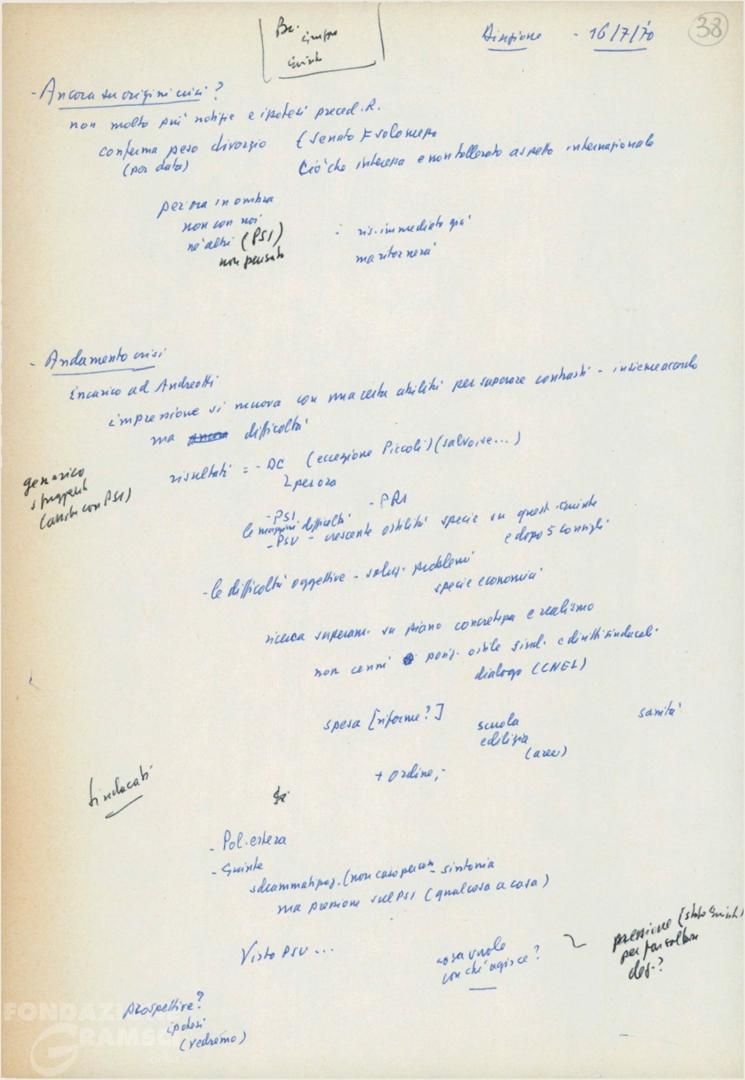 Direzione - 16/7/70
38
Be.
giunte
- Ancora su origini crisi?
non molto più notizie e ipotesi preced. R.
conferma peso divorzio (senato
(per data) Ciò che interessa e non tollerato aspetto internazionale
per ora in ombra
non con noi
né altri (PSI) : ris. immediato già
non pensato ma ritornerà
- Andamento crisi
Incarico ad Andreotti
impressione si muova con una certa abilità per superare contrasti -
ma ancora difficoltà
generico
(anche con PSI)
risultati = - DC (eccezione Piccoli) (salvo ise...)
2 per ora
- PSI - PRI
le maggiori difficoltà
- PSU - crescente ostilità specie su quest. Giunte
e dopo 5 consigli
- le difficoltà oggettive - soluz. problemi
specie economici
ricerca superam. su piano concretezza e realismo
non cenni posiz. ostile sind. e diritti sindacali
dialogo (CNEL)
spesa [riforme?] scuola sanità
edilizia
(aree)
+ ordine,
Sindacati
- Pol. estera
- Giunte
sdrammatizzaz. (non caso per caso - sintonia
ma pressione sul PSI (qualcosa a casa)
Visto PSU ...
cosa vuole
con chi agisce?
pressione
per far saltare
prospettive?
ipotesi
(vedremo)
FONDAZIONE
GRAMSCI